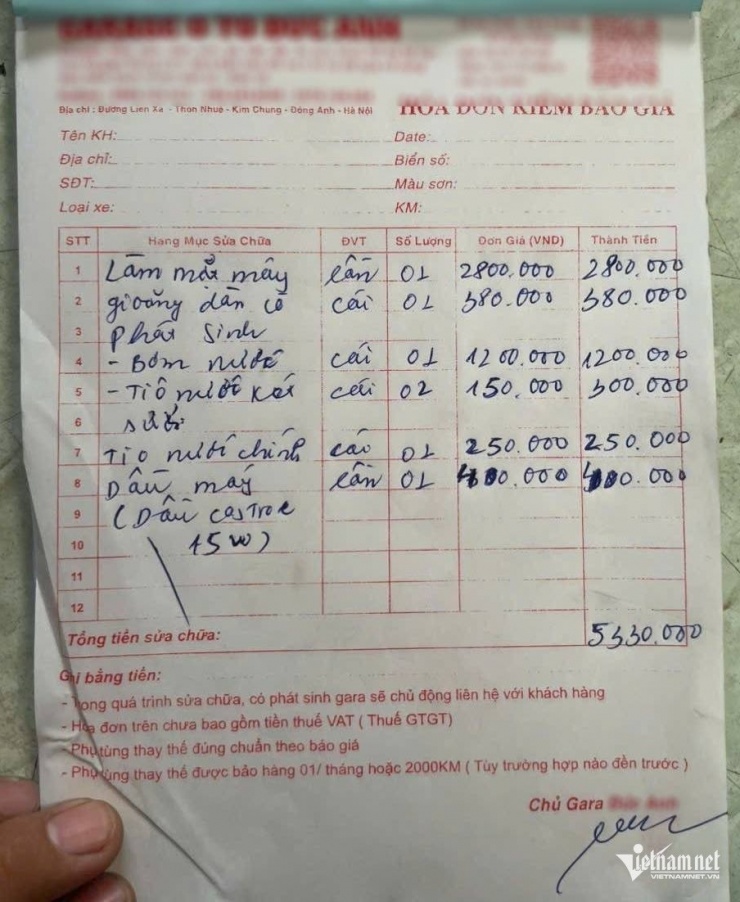 Địa chỉ : Đường Liên Xã - Thôn Nhuế - Kim Chung - Đông Anh - Hà Nội
HÓA ĐƠN KIÊM BÁO GIÁ
Tên KH: Date:
Địa chỉ: Biển số:
SĐT: Màu sơn:
Loại xe: KM:
STT Hạng Mục Sửa Chữa ĐVT Số Lượng Đơn Giá (VND) Thành Tiền
1 Làm mặt máy lần 01 2800.000 2800.000
2 gioăng dàn cò cái 01 380.000 380.000
3 phát sinh
4 - Bơm nước cái 01 1200.000 1200.000
5 - Tiô nước két cái 02 150.000 300.000
6 sưởi
7 Tio nước chính cái 01 250.000 250.000
8 Dầu máy lần 01 400.000 400.000
9 (Dầu castrol
10 15W)
11
12
Tổng tiền sửa chữa: 5330.000
Ghi bằng tiền:
- Trong quá trình sửa chữa, có phát sinh gara sẽ chủ động liên hệ với khách hàng
- Hóa đơn trên chưa bao gồm tiền thuế VAT ( Thuế GTGT)
- Phụ tùng thay thế đúng chuẩn theo báo giá
- Phụ tùng thay thế được bảo hàng 01/ tháng hoặc 2000KM ( Tùy trường hợp nào đến trước )
Chủ Gara
Vietnamnet
VIETNAMNET.VN